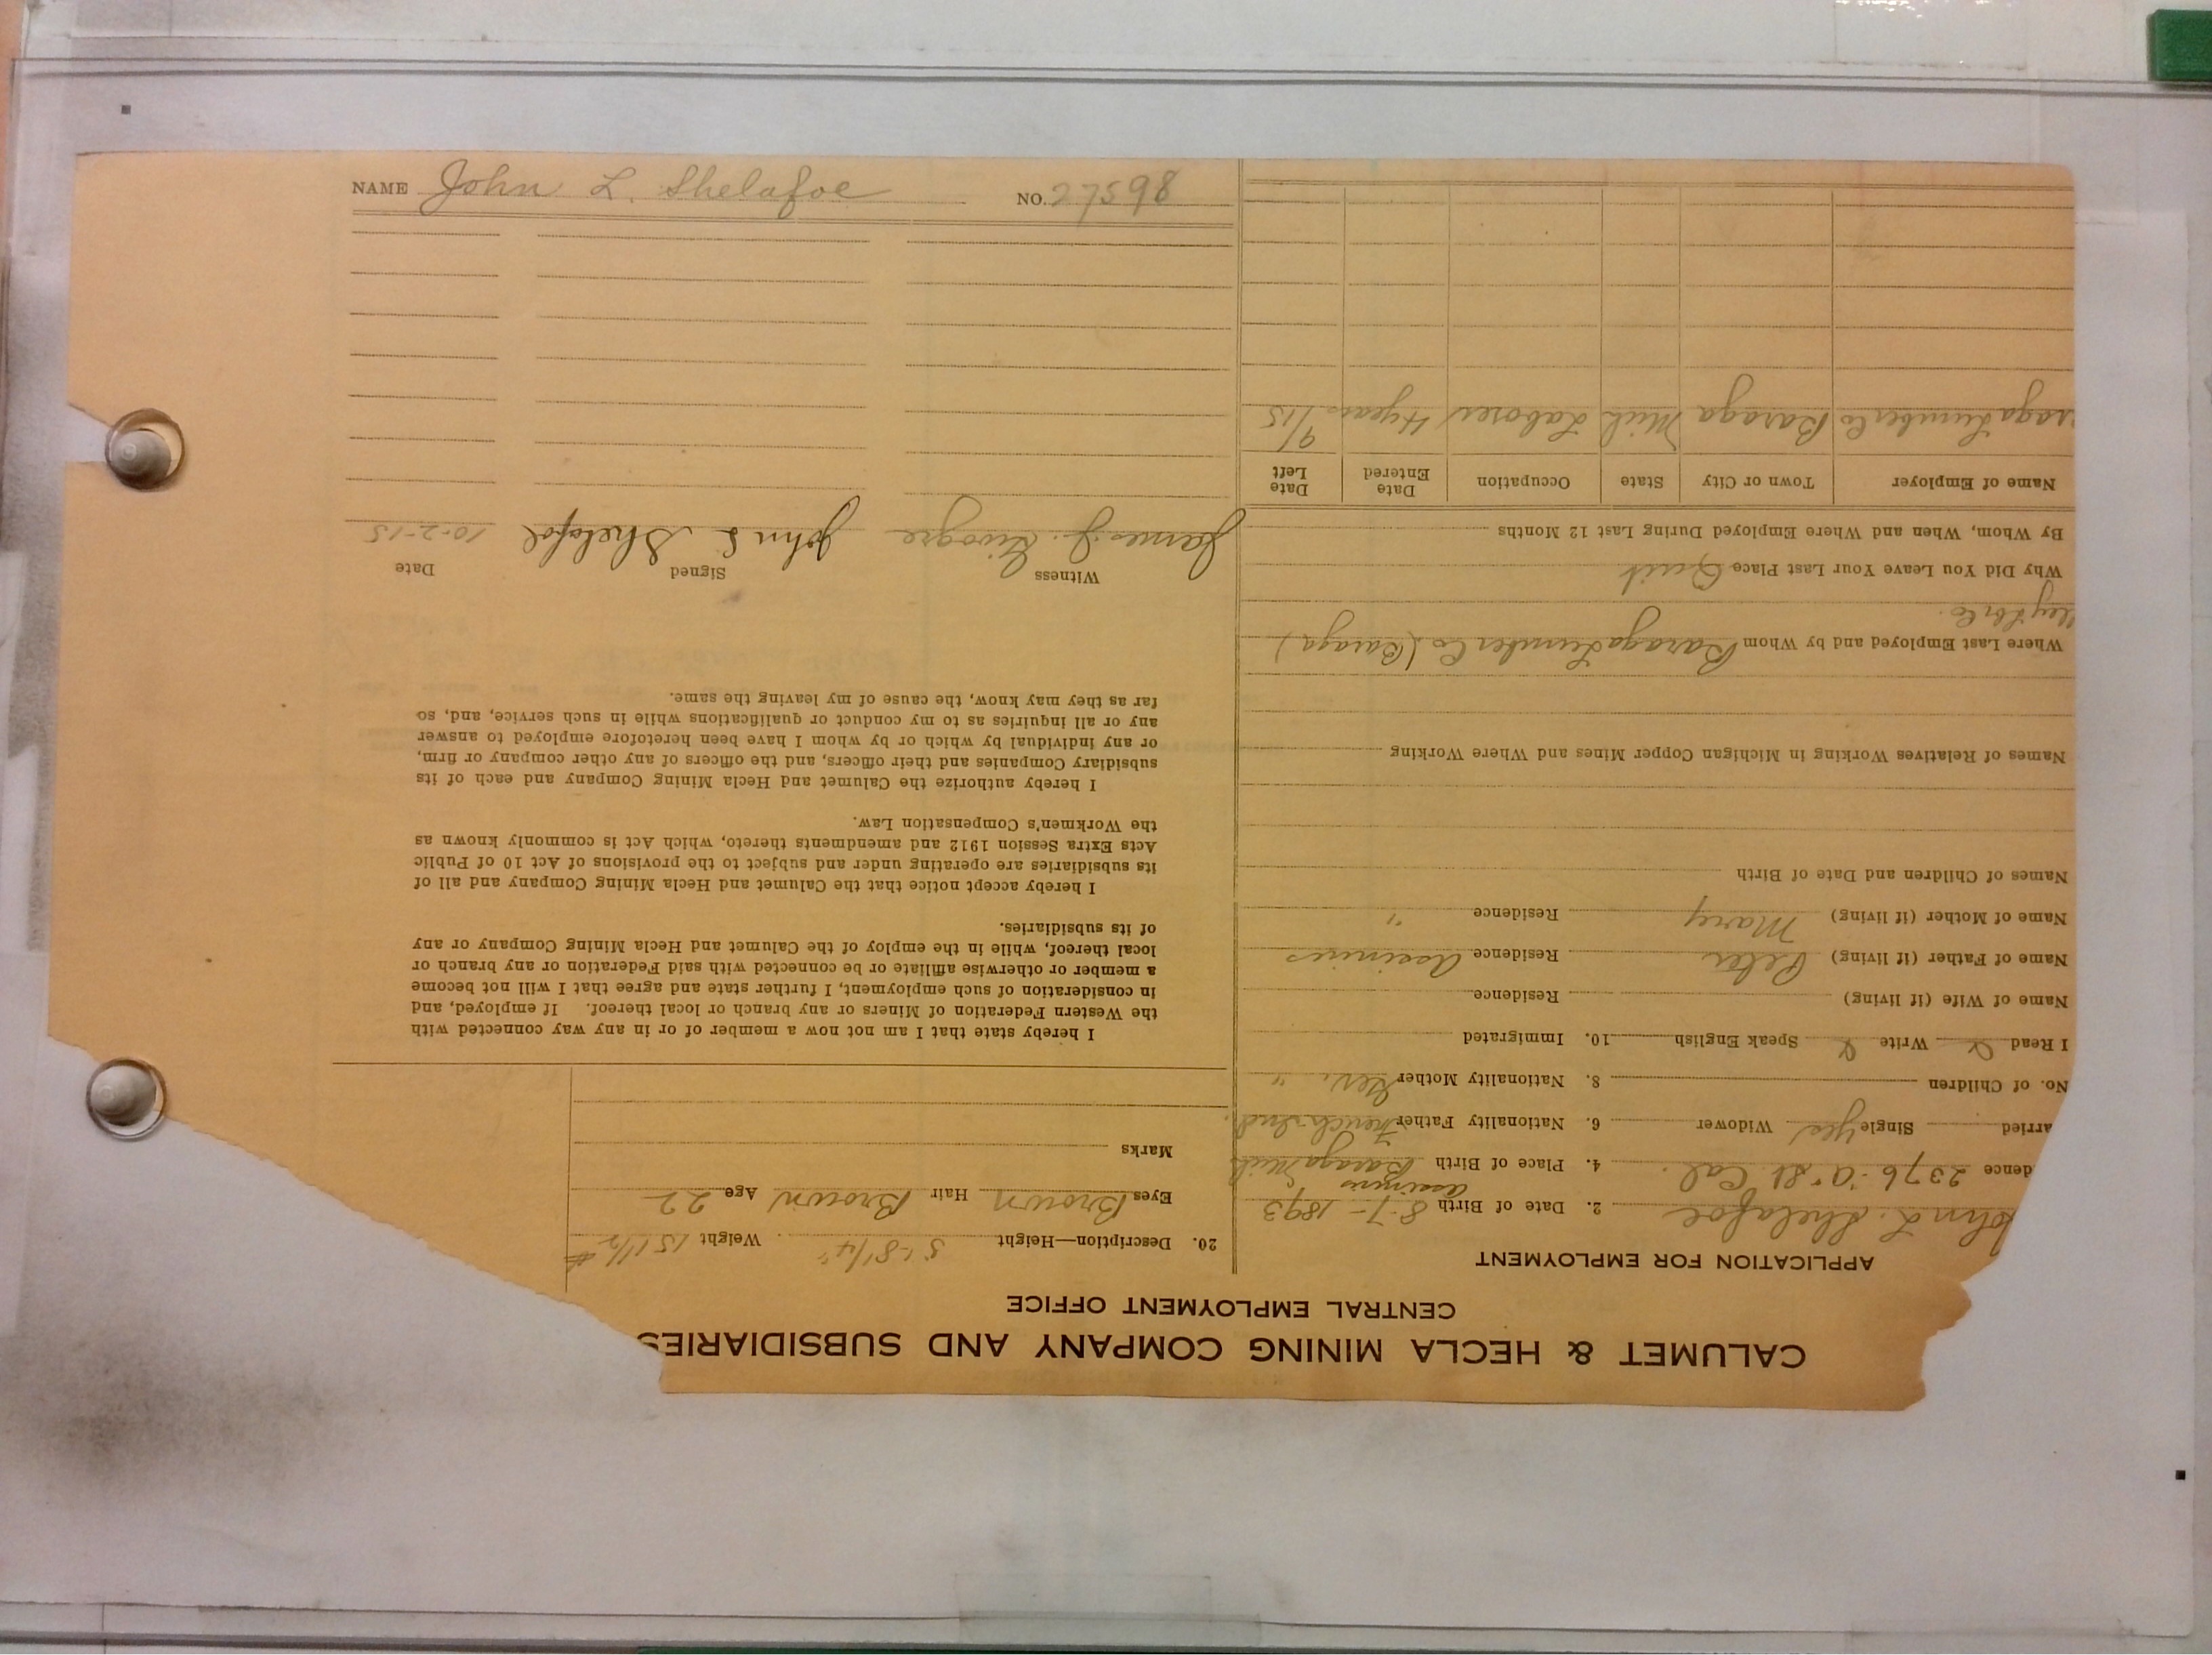 CALUMET & HECLA MINING COMPANY AND SUBSIDIARIES
CENTRAL EMPLOYMENT OFFICE
APPLICATION FOR EMPLOYMENT
John L. Shelafoe 2. Date of Birth 8-7-1893
dence 2376 "A" St Cal. 4. Place of Birth Assinins Baraga Mich
arried Single Yes Widower 6. Nationality Father French Ind.
No. of Children 8. Nationality Mother "
I Read Write Speak English 10. Immigrated
Name of Wife (if living) Residence
Name of Father (if living) Peter Residence Assinins
Name of Mother (if living) Mary Residence "
Names of Children and Date of Birth
Names of Relatives Working in Michigan Copper Mines and Where Working
Where Last Employed and by Whom Baraga Lumber Co (Baraga)
Why Did You Leave Your Last Place Quit
By Whom, When and Where Employed During Last 12 Months
Name of Employer Town or City State Occupation Date Entered Date Left
raga Lumber Co Baraga Mich Laborer 4 years 9/15
20. Description—Height 5'-8 1/4" Weight 151 1/2 #
Eyes Brown Hair Brown Age 22
Marks
I hereby state that I am not now a member of or in any way connected with
the Western Federation of Miners or any branch or local thereof. If employed, and
in consideration of such employment, I further state and agree that I will not become
a member or otherwise affiliate or be connected with said Federation or any branch or
local thereof, while in the employ of the Calumet and Hecla Mining Company or any
of its subsidiaries.
I hereby accept notice that the Calumet and Hecla Mining Company and all of
its subsidiaries are operating under and subject to the provisions of Act 10 of Public
Acts Extra Session 1912 and amendments thereto, which Act is commonly known as
the Workmen's Compensation Law.
I hereby authorize the Calumet and Hecla Mining Company and each of its
subsidiary Companies and their officers, and the officers of any other company or firm,
or any individual by which or by whom I have been heretofore employed to answer
any or all inquiries as to my conduct or qualifications while in such service, and, so
far as they may know, the cause of my leaving the same.
Witness Signed Date
James J. John L Shelafoe 10-2-15
NAME John L. Shelafoe NO. 27598